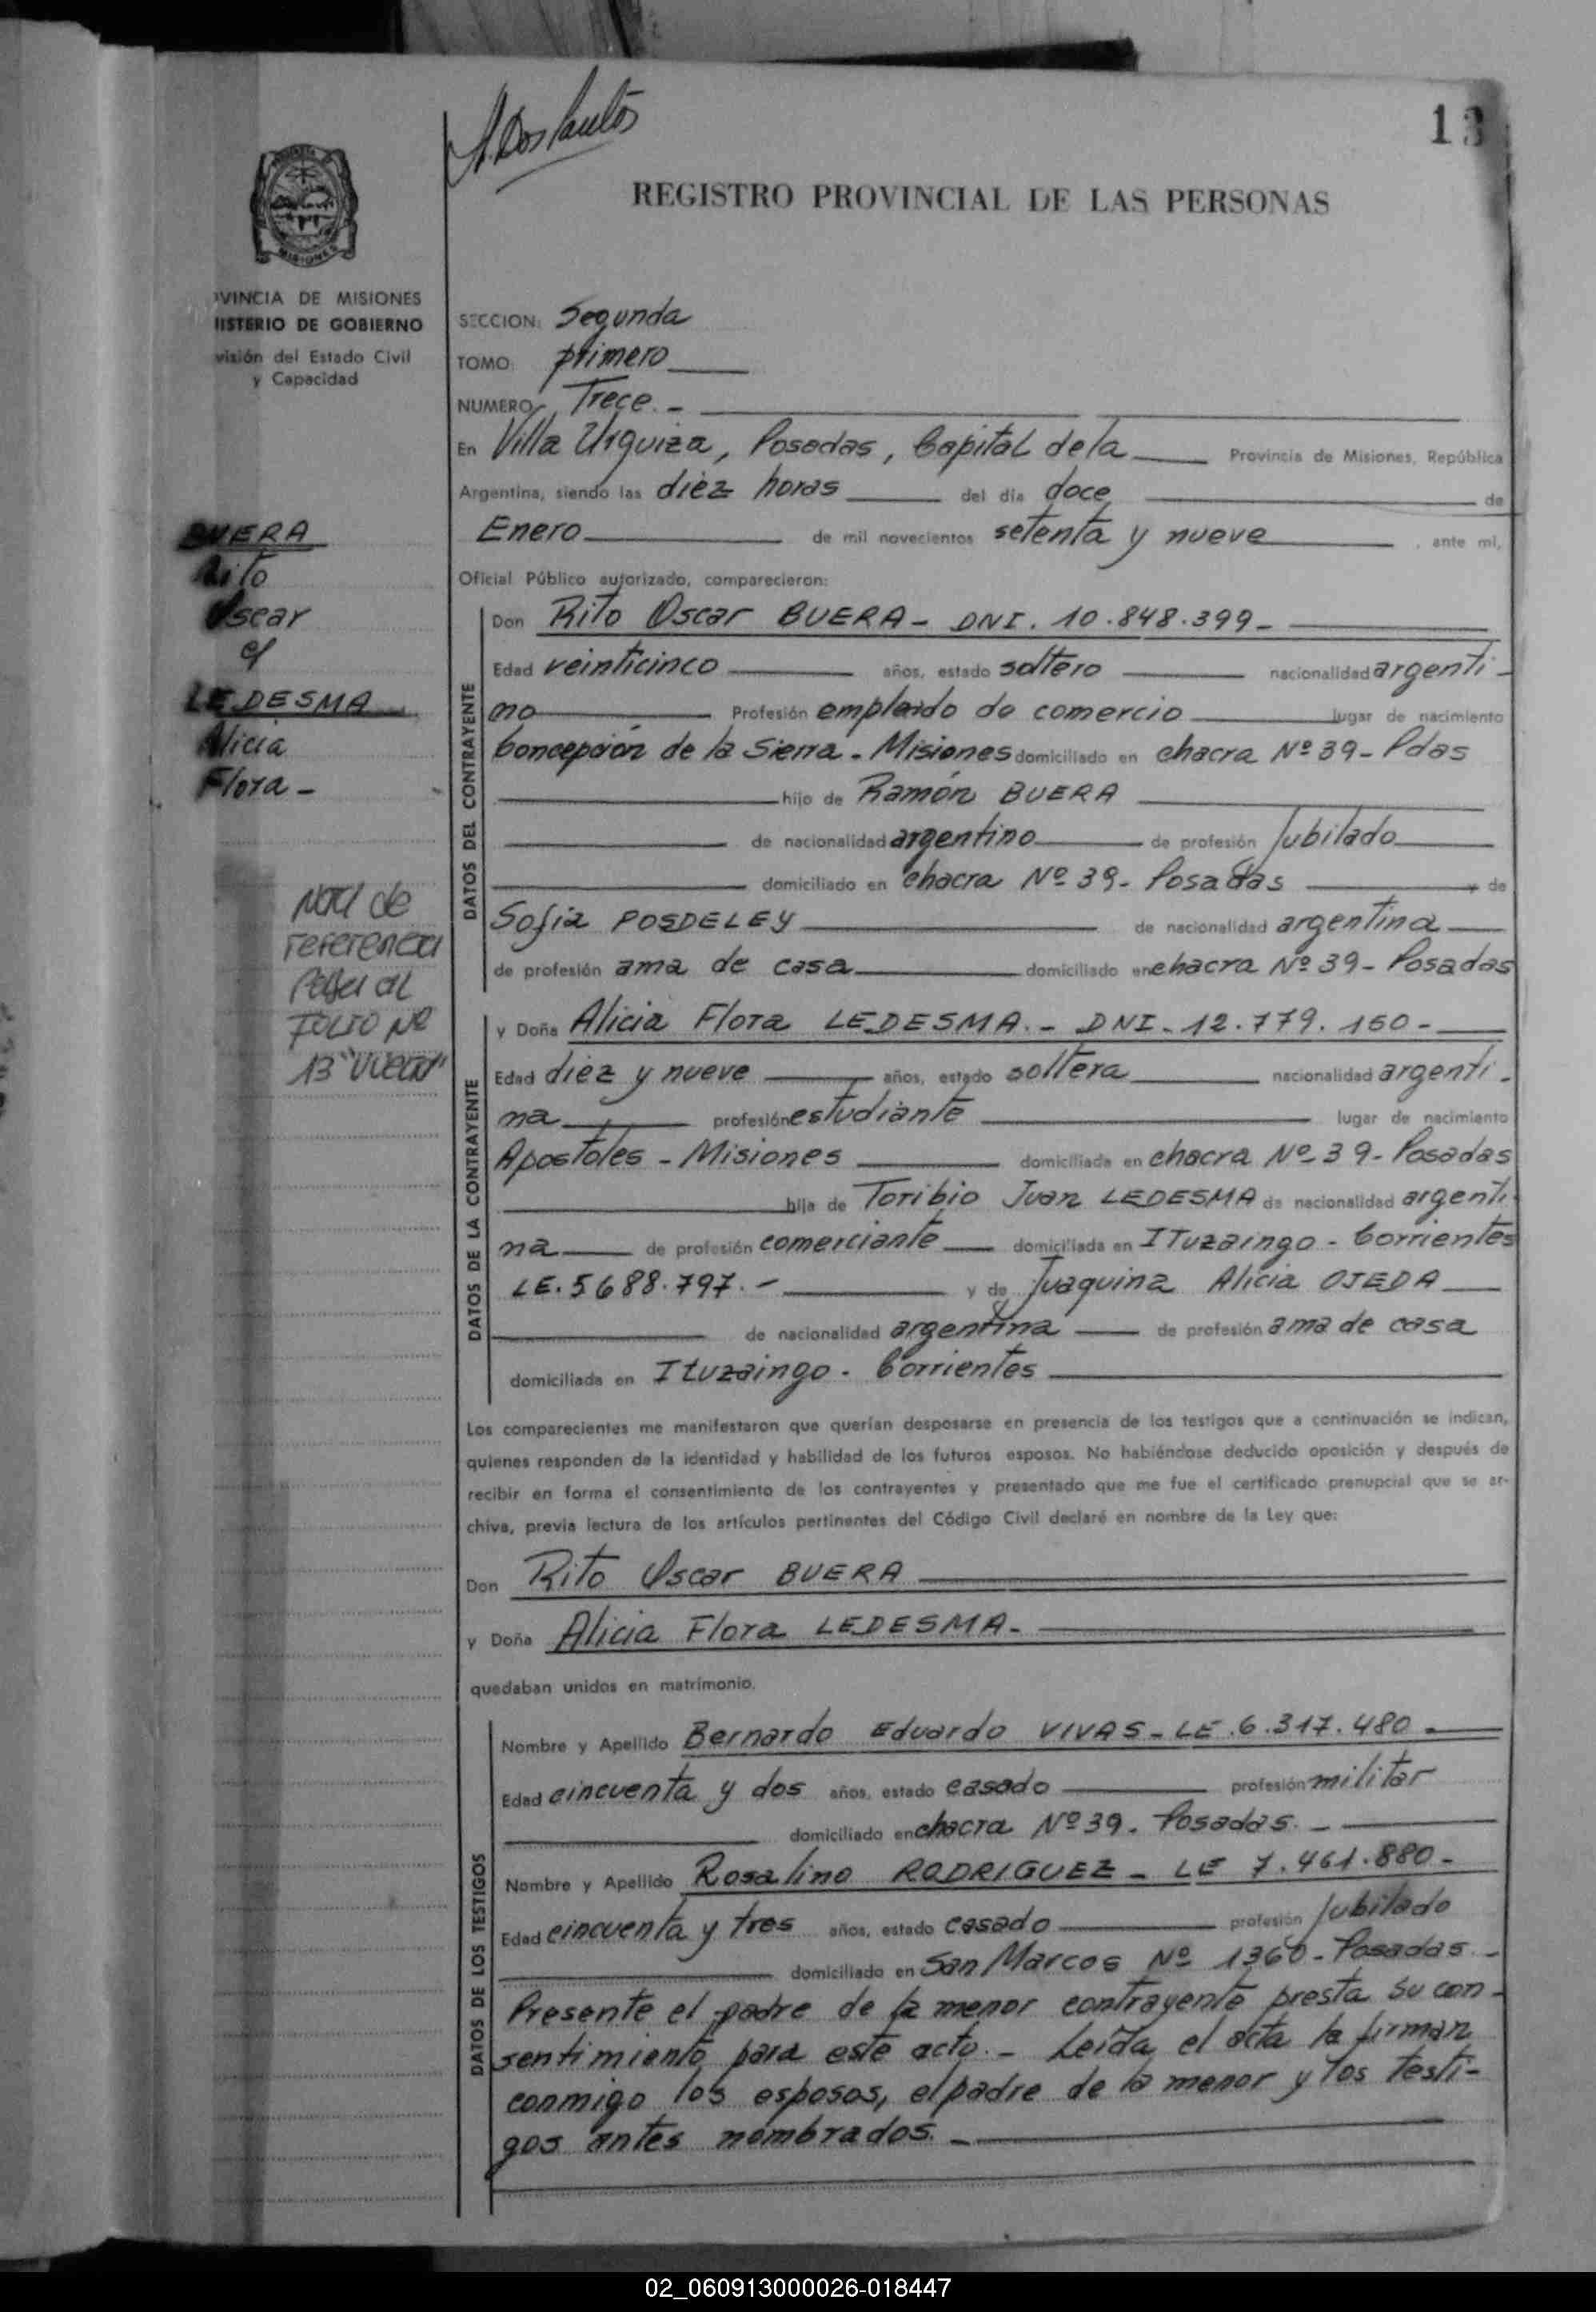 A. Dos Santos
13
REGISTRO PROVINCIAL DE LAS PERSONAS
MISIONES
VINCIA DE MISIONES
ISTERIO DE GOBIERNO
visión del Estado Civil
y Capacidad
SECCION: Segunda
TOMO: primero
NUMERO Trece.-
En Villa Urquiza, Posadas, Capital de la Provincia de Misiones, República
Argentina, siendo las diez horas del día doce de
Enero de mil novecientos setenta y nueve, ante mí,
Oficial Público autorizado, comparecieron:
BUERA
Rito
Oscar
c/
LEDESMA
Alicia
Flora -
Nota de
referencia
pasa al
FOLIO Nº
13 "vuelta"
DATOS DEL CONTRAYENTE
Don Rito Oscar BUERA - DNI. 10.848.399 -
Edad veinticinco años, estado soltero nacionalidad argenti-
no Profesión empleado de comercio lugar de nacimiento
Concepción de la Sierra - Misiones domiciliado en chacra Nº 39 - Pdas
hijo de Ramón BUERA
de nacionalidad argentino de profesión Jubilado
domiciliado en chacra Nº 39 - Posadas y de
Sofia POSDELEY de nacionalidad argentina
de profesión ama de casa domiciliado en chacra Nº 39 - Posadas
DATOS DE LA CONTRAYENTE
y Doña Alicia Flora LEDESMA. - DNI - 12.779.160 -
Edad diez y nueve años, estado soltera nacionalidad argenti-
na profesión estudiante lugar de nacimiento
Apostoles - Misiones domiciliada en chacra Nº 39 - Posadas
hija de Toribio Juan LEDESMA de nacionalidad argenti-
na de profesión comerciante domiciliada en ITuzaingo - Corrientes
LE. 5688.797. - y de Juaquina Alicia OJEDA
de nacionalidad argentina de profesión ama de casa
domiciliada en Ituzaingo - Corrientes
Los comparecientes me manifestaron que querían desposarse en presencia de los testigos que a continuación se indican,
quienes responden de la identidad y habilidad de los futuros esposos. No habiéndose deducido oposición y después de
recibir en forma el consentimiento de los contrayentes y presentado que me fue el certificado prenupcial que se ar-
chiva, previa lectura de los artículos pertinentes del Código Civil declaré en nombre de la Ley que:
Don Rito Oscar BUERA
y Doña Alicia Flora LEDESMA -
quedaban unidos en matrimonio.
DATOS DE LOS TESTIGOS
Nombre y Apellido Bernardo Eduardo VIVAS - LE. 6.317.480 -
Edad cincuenta y dos años, estado casado profesión militar
domiciliado en chacra Nº 39 - Posadas. -
Nombre y Apellido Rosalino RODRIGUEZ - LE 7.461.880 -
Edad cincuenta y tres años, estado casado profesión Jubilado
domiciliado en San Marcos Nº 1360 - Posadas -
Presente el padre de la menor contrayente presta su con-
sentimiento para este acto. - Leída el acta la firman
conmigo los esposos, el padre de la menor y los testi-
gos antes nombrados. -
02_060913000026-018447